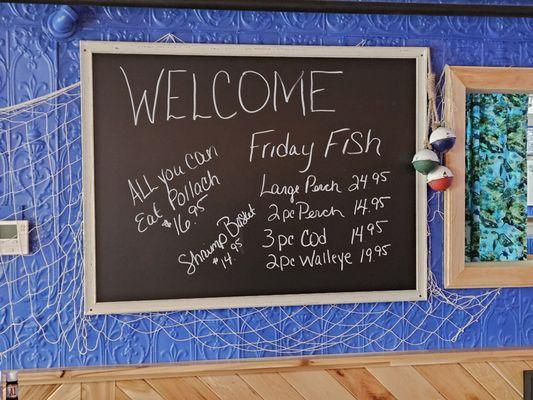 WELCOME
ALL you Can
Eat Pollach
$16.95
Shrimp Basket
$14.95
Friday Fish
Large Perch 24.95
2pc Perch 14.95
3pc Cod 14.95
2pc Walleye 19.95